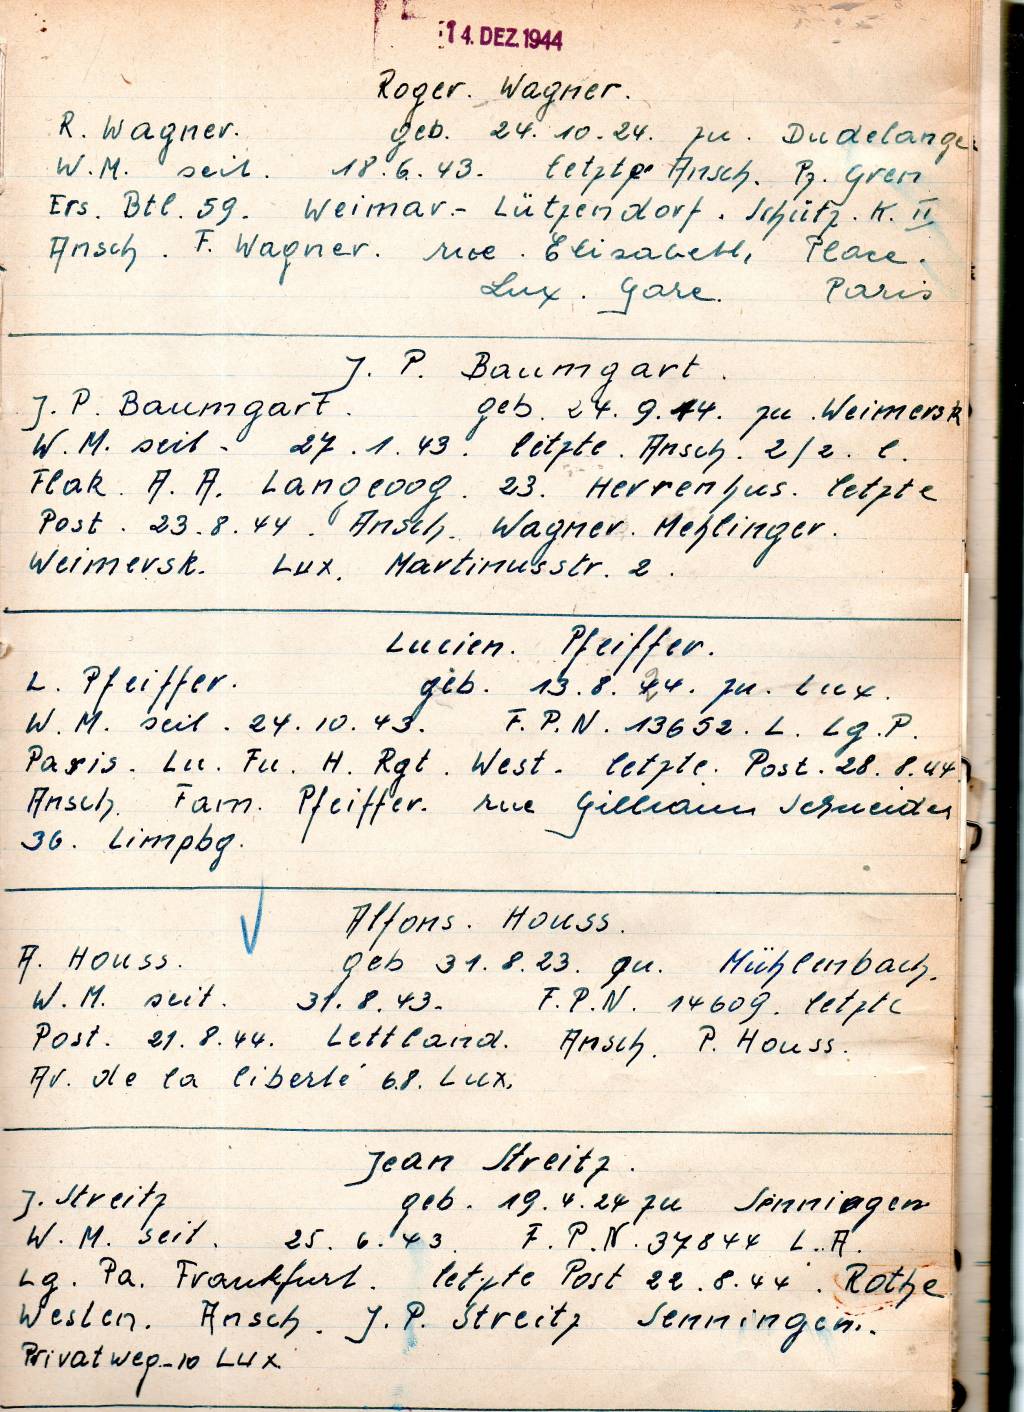 14. DEZ. 1944
Roger. Wagner.
R. Wagner. geb. 24. 10. 24. zu. Dudelange.
W.M. seit. 18. 6. 43. letzte Ansch. Pz. Gren
Ers. Btl. 59. Weimar.- Lützendorf. Schütz. K. II
Ansch. F. Wagner. rue. Elisabeth, Place.
Lux. Gare. Paris
J. P. Baumgart.
J. P. Baumgart. geb. 24. 9. 14. zu. Weimersk
W. M. seit - 27. 1. 43. letzte. Ansch. 2/2. l.
Flak. A. A. Langeoog. 23. Herrenhus. letzte
Post. 23. 8. 44. Ansch. Wagner. Mehlinger.
Weimersk. Lux. Martinusstr. 2.
Lucien. Pfeiffer.
L. Pfeiffer. geb. 13. 8. 24. zu. Lux.
W. M. seit. 24. 10. 43. F.P.N. 13652. L. Lg. P.
Paris. Lu. Fu. H. Rgt. West. letzte. Post. 28. 8. 44.
Ansch. Fam. Pfeiffer. rue Schneider
36. Limpbg.
Alfons. Houss.
A. Houss. geb 31. 8. 23. zu. Mühlenbach.
W. M. seit. 31. 8. 43. F.P.N. 14609. letzte
Post. 21. 8. 44. Lettland. Ansch. P. Houss.
Av. de la liberté 68. Lux.
Jean Streitz.
J. Streitz geb. 19. 4. 24 zu Senningen
W. M. seit. 25. 6. 43. F.P.N. 37844 L. A.
Lg. Pa. Frankfurt. letzte Post 22. 8. 44. Rothe
Westen. Ansch. J. P. Streitz Senningen.
Privatweg - 10 Lux